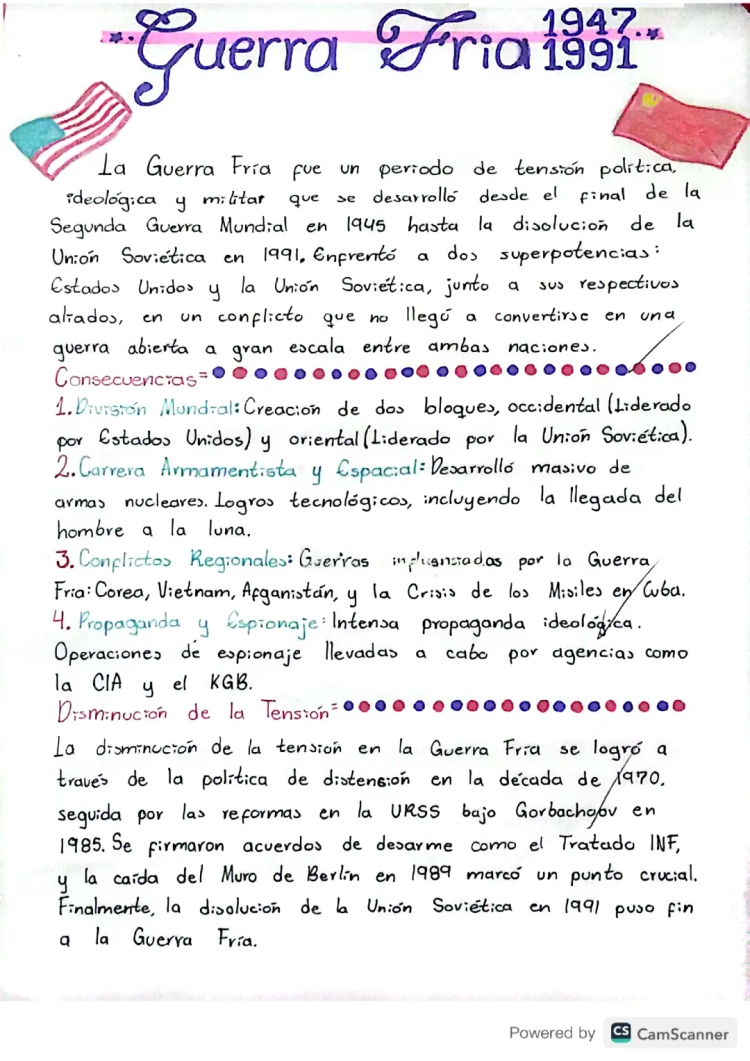 Guerra Fría 1947 1991
La Guerra Fría fue un periodo de tensión política,
ideológica y militar que se desarrolló desde el final de la
Segunda Guerra Mundial en 1945 hasta la disolución de la
Unión Soviética en 1991. Enfrentó a dos superpotencias:
Estados Unidos y la Unión Soviética, junto a sus respectivos
aliados, en un conflicto que no llegó a convertirse en una
guerra abierta a gran escala entre ambas naciones.
Consecuencias=
1. División Mundial: Creación de dos bloques, occidental (Liderado
por Estados Unidos) y oriental (Liderado por la Unión Soviética).
2. Carrera Armamentista y Espacial: Desarrolló masivo de
armas nucleares. Logros tecnológicos, incluyendo la llegada del
hombre a la luna.
3. Conflictos Regionales: Guerras influenciadas por la Guerra
Fría: Corea, Vietnam, Afganistán, y la Crisis de los Misiles en Cuba.
4. Propaganda y Espionaje: Intensa propaganda ideológica.
Operaciones de espionaje llevadas a cabo por agencias como
la CIA y el KGB.
Disminución de la Tensión=
La disminución de la tensión en la Guerra Fría se logró a
través de la política de distensión en la década de 1970,
seguida por las reformas en la URSS bajo Gorbachov en
1985. Se firmaron acuerdos de desarme como el Tratado INF,
y la caída del Muro de Berlín en 1989 marcó un punto crucial.
Finalmente, la disolución de la Unión Soviética en 1991 puso fin
a la Guerra Fría.
Powered by CS CamScanner